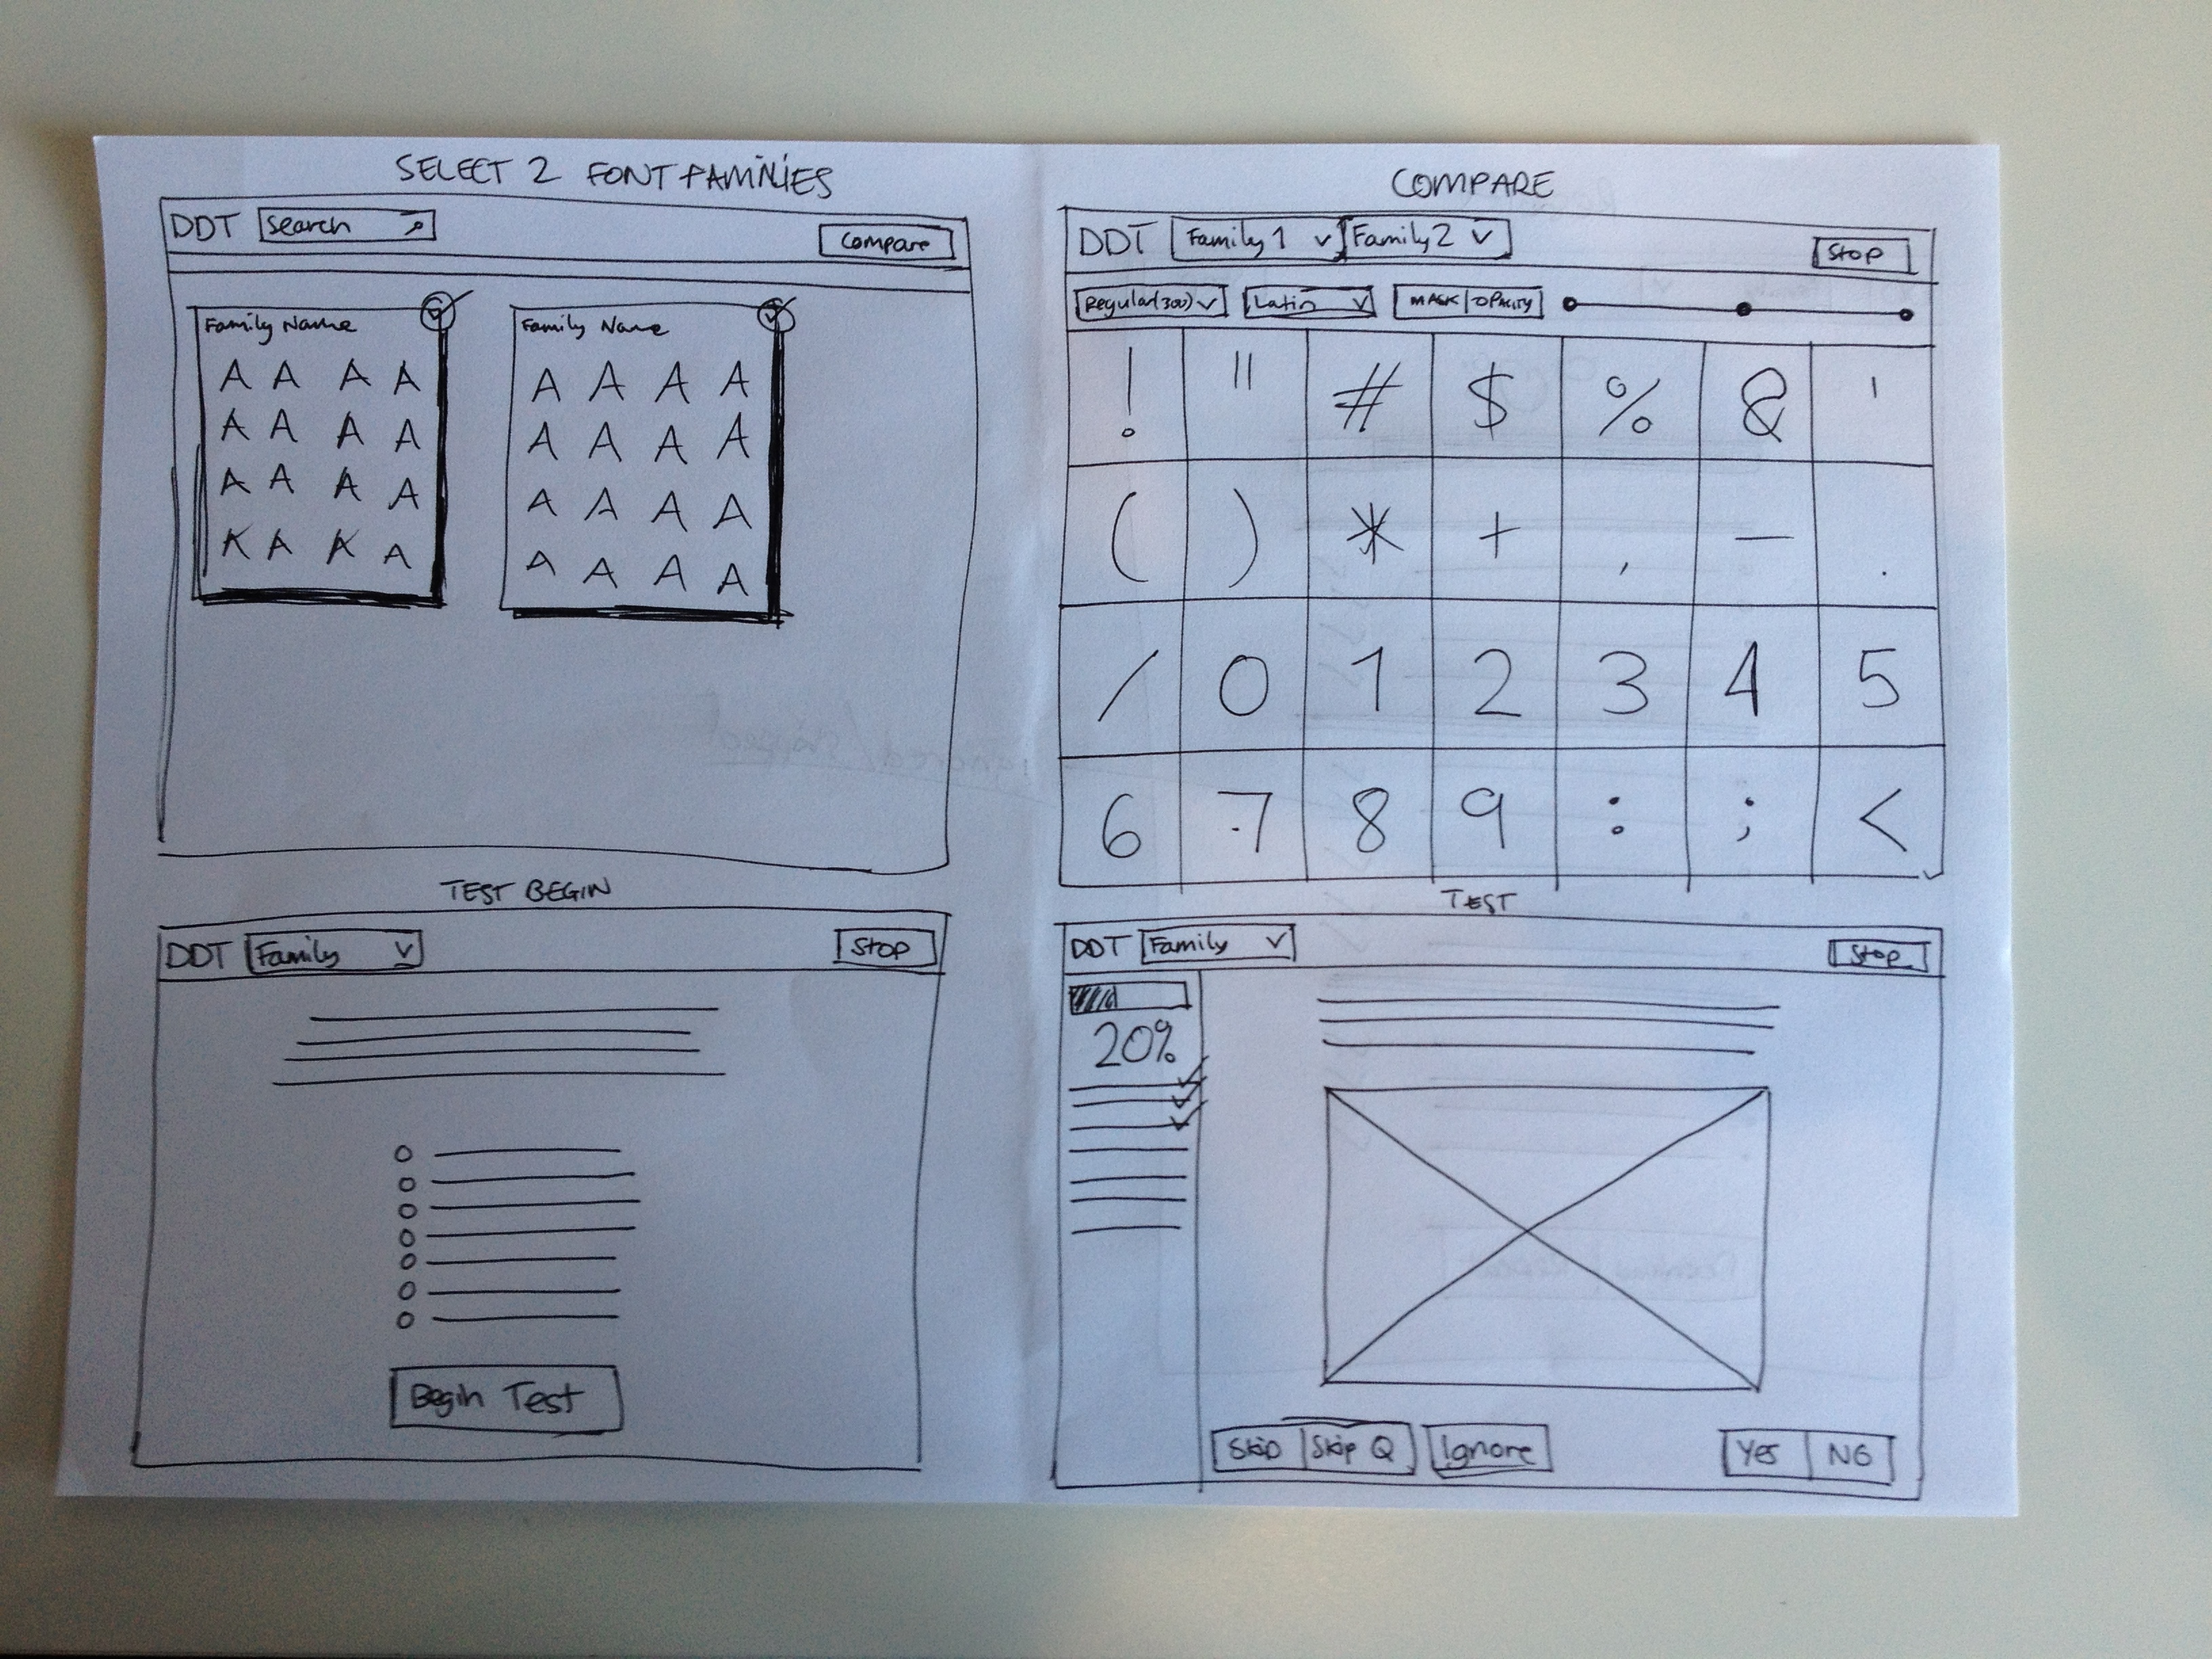 SELECT 2 FONT FAMILIES
DDT Search Compare
Family Name
A A A A
A A A A
A A A A
K A K A
Family Name
A A A A
A A A A
A A A A
A A A A
COMPARE
DDT Family 1 Family 2 Stop
Regular(300) Latin MASK|OPACITY
! " # $ % & '
( ) * + , — .
/ 0 1 2 3 4 5
6 7 8 9 : ; <
TEST BEGIN
DDT Family Stop
Begin Test
TEST
DDT Family Stop
20%
Skip Skip Q Ignore Yes NO